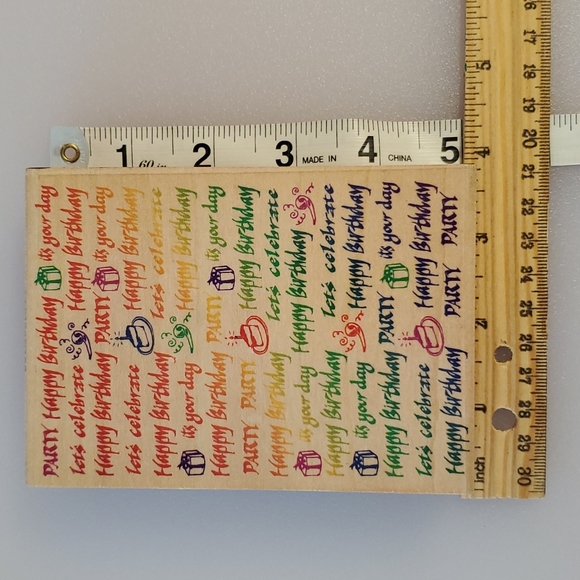 1 60 in 2 3 MADE IN 4 CHINA 5
PARTY Happy Birthday it's your day
let's celebrate Happy Birthday
Happy Birthday PARTY it's your day
let's celebrate Happy Birthday
Happy Birthday let's celebrate
it's your day Happy Birthday
Happy Birthday PARTY it's your day
PARTY Happy Birthday
Happy Birthday let's celebrate
it's your day Happy Birthday
Happy Birthday let's celebrate
it's your day Happy Birthday
Happy Birthday PARTY it's your day
let's celebrate Happy Birthday
Happy Birthday PARTY PARTY
inch 1 2 3 4 5
30 29 28 27 26 25 24 23 22 21 20 19 18 17 16